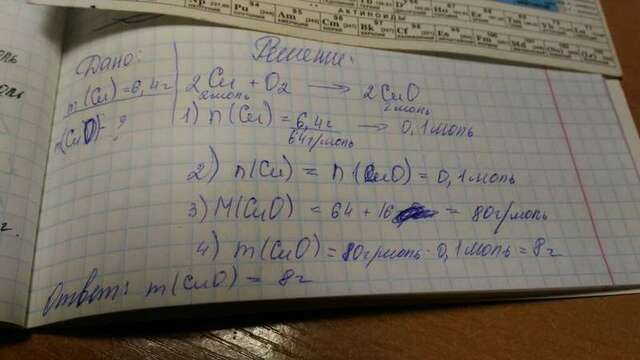 АКТИНОИДЫ
Pu
Am
Cm
Bk
Cf
Дано:
m(Cu) = 6,4г
m(CuO) - ?
Решение:
2Cu + O2 → 2CuO
2моль 2моль
1) n(Cu) = 6,4г / 64г/моль → 0,1моль
2) n(Cu) = n(CuO) = 0,1моль
3) M(CuO) = 64 + 16 = 80г/моль
4) m(CuO) = 80г/моль · 0,1моль = 8г
Ответ: m(CuO) = 8г